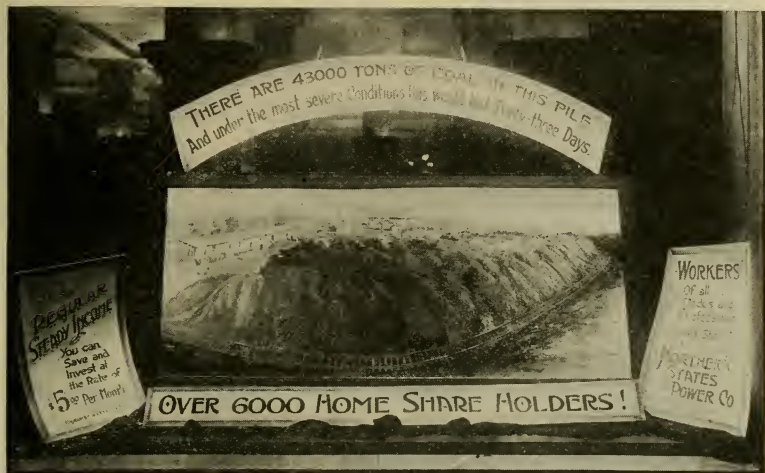 THERE ARE 43000 TONS OF COAL IN THIS PILE
And under the most severe Conditions this would last Thirty-three Days.
REGULAR
STEADY INCOME
You can
Save and
Invest at
the Rate of
$5.00 Per Month
OVER 6000 HOME SHARE HOLDERS!
WORKERS
Of all
NORTHERN
STATES
POWER CO